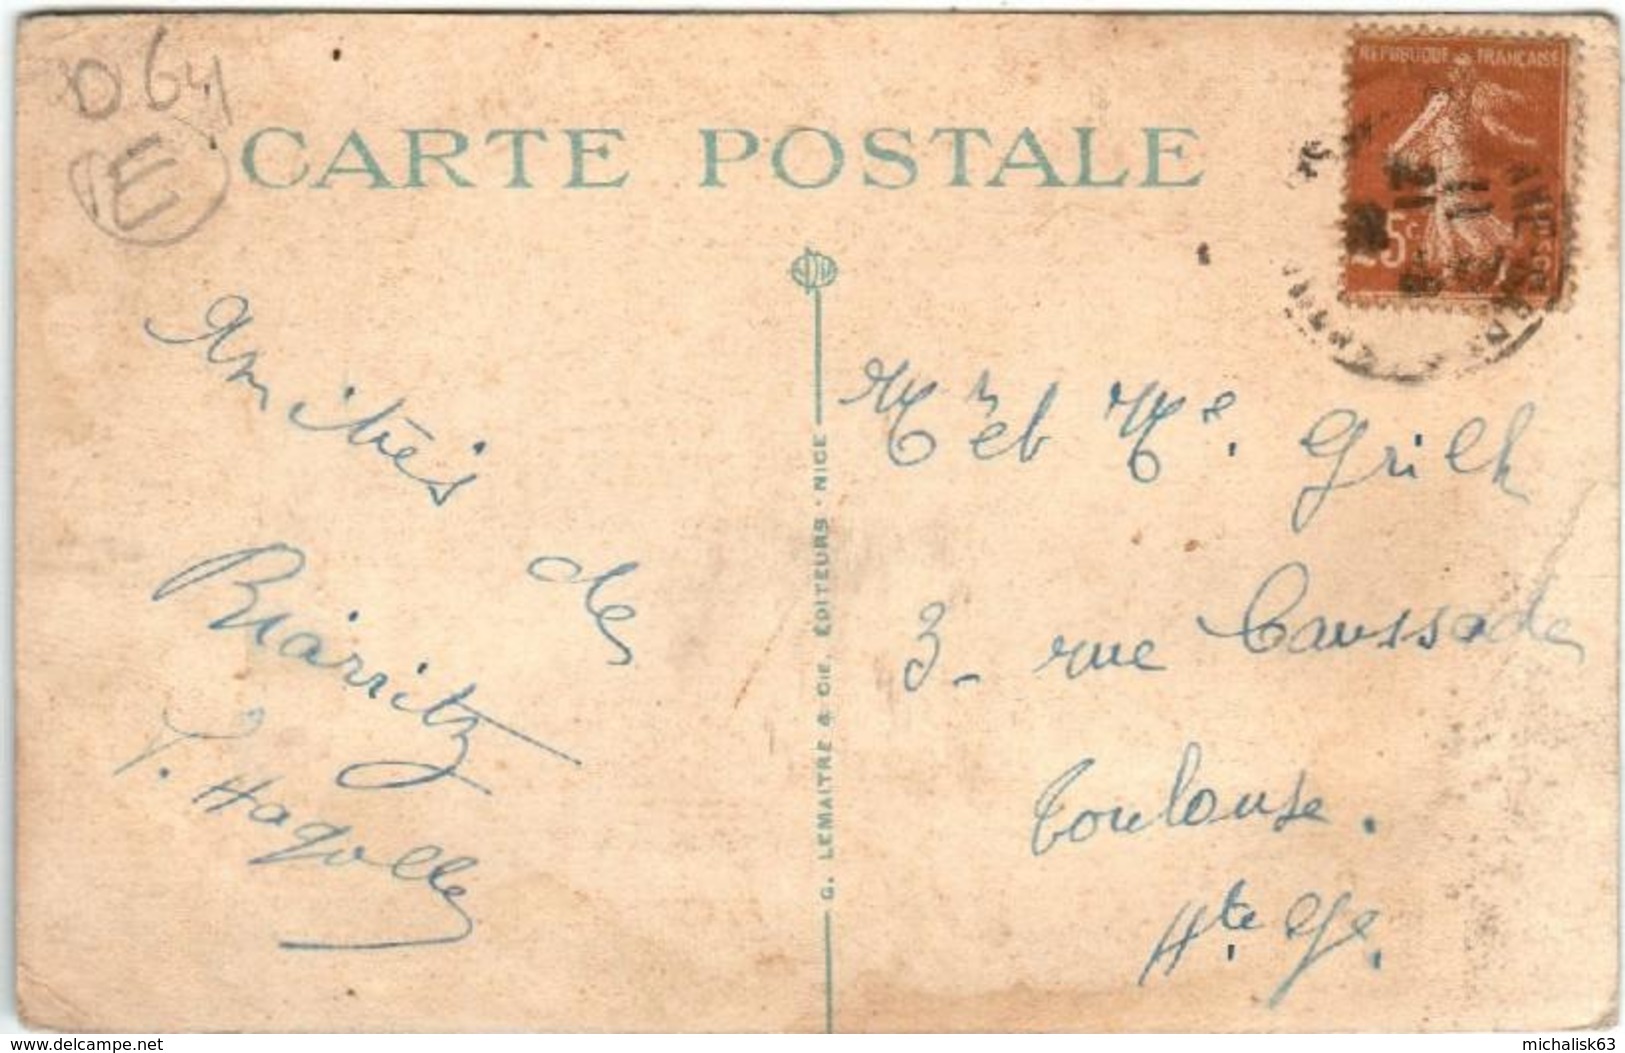 D 64
E
CARTE POSTALE
REPUBLIQUE FRANCAISE
25c
Amitiés
de
Biarritz
Hagolle
G. LEMAITRE & CIE. ÉDITEURS · NICE
Mr et Me. Grilh
3 - rue Caussade
Toulouse.
Hte Gne.
www.delcampe.net
michalisk63